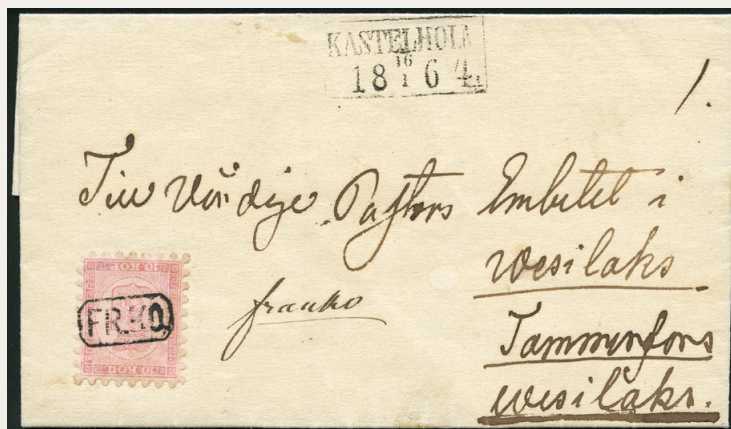 KASTELHOLM
18 16/1 64.
1.
Till Vördige Pastors Embetet i
Wesilaks
franko
Tammerfors
Wesilaks.
10 KOP.
FR.KO
10 KOP.